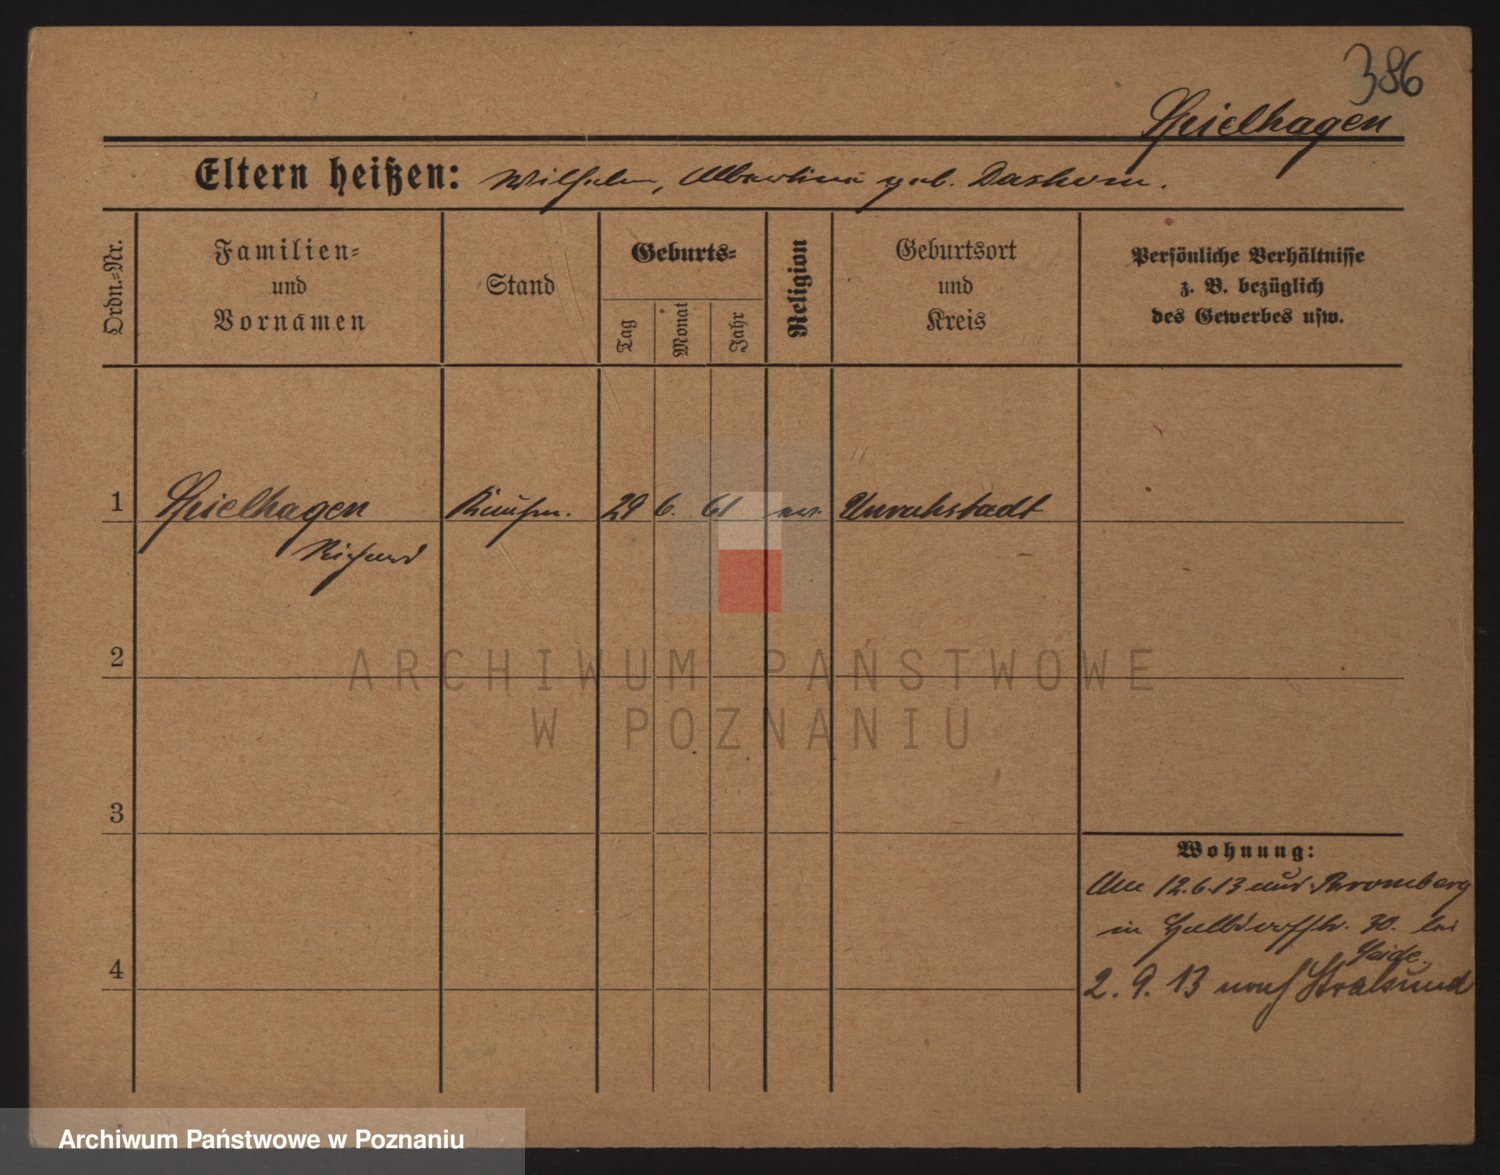 386
Spielhagen
Eltern heißen: Wilhelm, Albertine geb.
Ordn.-Nr.
Familien-
und
Vornamen
Stand
Geburts-
Tag
Monat
Jahr
Religion
Geburtsort
und
Kreis
Persönliche Verhältnisse
z. B. bezüglich
des Gewerbes usw.
1 Spielhagen Kaufm. 29 6. 61 ev. Unruhstadt
Richard
2
ARCHIWUM PAŃSTWOWE
W POZNANIU
3
Wohnung:
Am 12.6.13 aus Bromberg
in Halbdorfstr. 30. bei
4
2. 9. 13 nach Stralsund
Archiwum Państwowe w Poznaniu